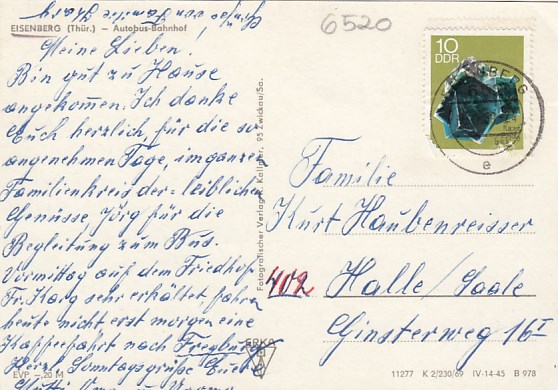 6520
EISENBERG (Thür.) – Autobus-Bahnhof
Meine Lieben!
Bin gut zu Hause
angekommen. Ich danke
Euch herzlich, für die so
angenehmen Tage, im ganzen
Familienkreis der leiblichen
Genüsse, Jörg für die
Begleitung zum Bus.
Vormittag auf dem Friedhof
Fr. sehr erkältet, fahren
heute nicht erst morgen eine
Kaffeefahrt nach
Herzl. Sonntagsgrüße Euch
EVP –,20 M
Fotografischer Verlag R. Kallmer, 95 Zwickau/Sa.
ERKA
10
DDR
EISENBERG
e
Familie
Kurt Haubenreisser
402 Halle/Saale
Ginsterweg 16 I
11277 K 2/230/69 IV-14-45 B 978